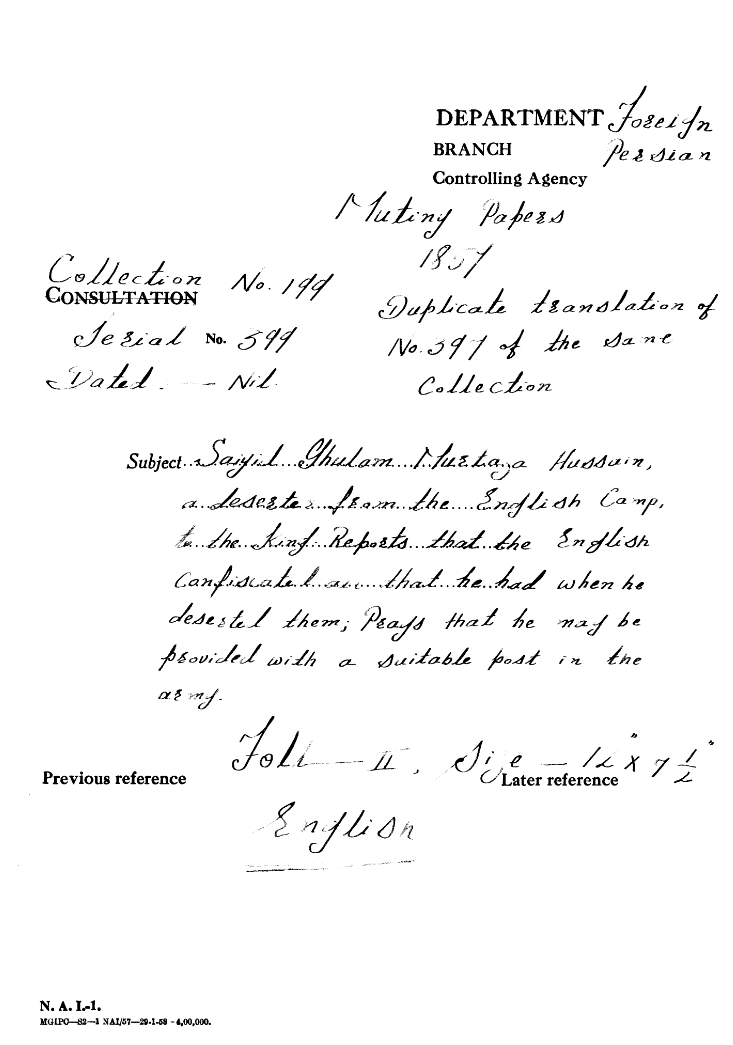 DEPARTMENT Foreign
BRANCH Persian
Controlling Agency
Mutiny Papers
1857
Collection No. 199
CONSULTATION
Serial No. 599
Dated. — Nil.
Duplicate translation of
No. 597 of the same
Collection
Subject.. Saiyid Ghulam Murtaza Hussain,
a deserter from the English Camp,
to the King Reports that the English
Confiscated all that he had when he
deserted them; Prays that he may be
provided with a suitable post in the
army.
Foll — II, Size — 12" x 7 1/2"
Previous reference
Later reference
English
N. A. I.-1.
MGIPC—S2—1 NAI/57—29-1-58 - 4,00,000.